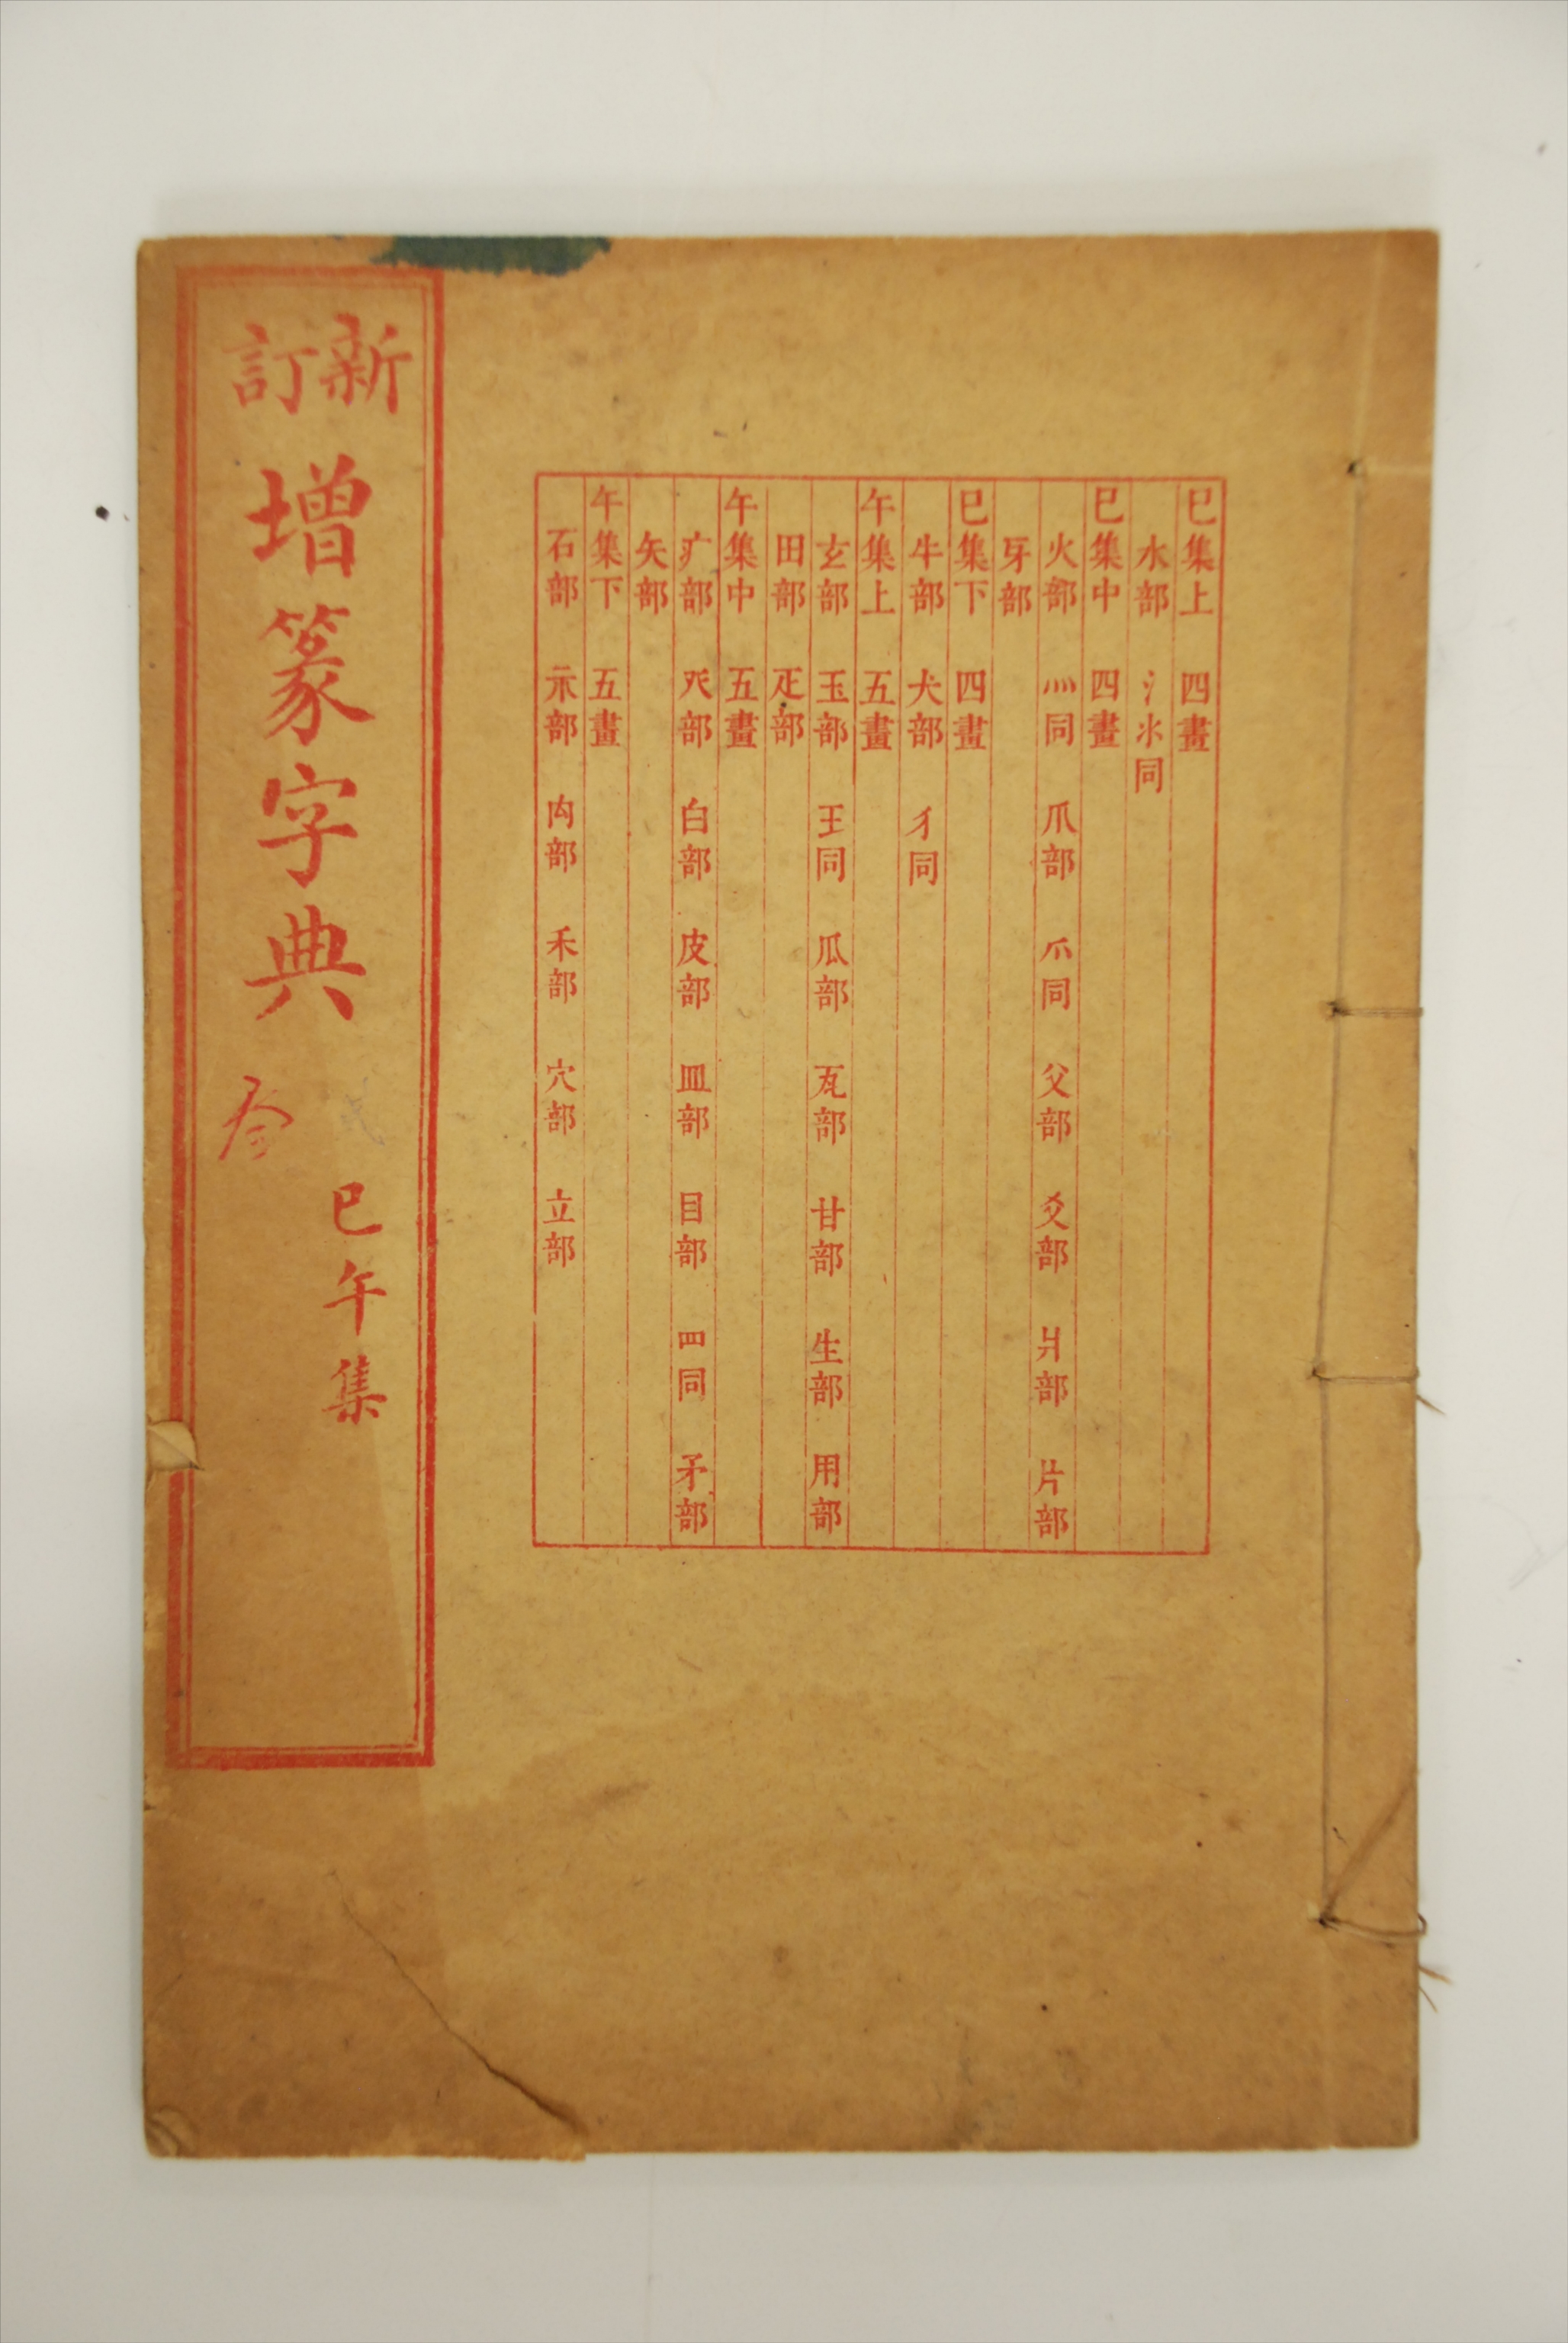 巳集上　四畫
水部　氵氺同
巳集中　四畫
火部　灬同　爪部　爫同　父部　爻部　爿部　片部
牙部
巳集下　四畫
牛部　犬部　犭同
午集上　五畫
玄部　玉部　王同　瓜部　瓦部　甘部　生部　用部
田部　疋部
午集中　五畫
疒部　癶部　白部　皮部　皿部　目部　罒同　矛部
矢部
午集下　五畫
石部　示部　禸部　禾部　穴部　立部
新訂
增篆字典
巳午集